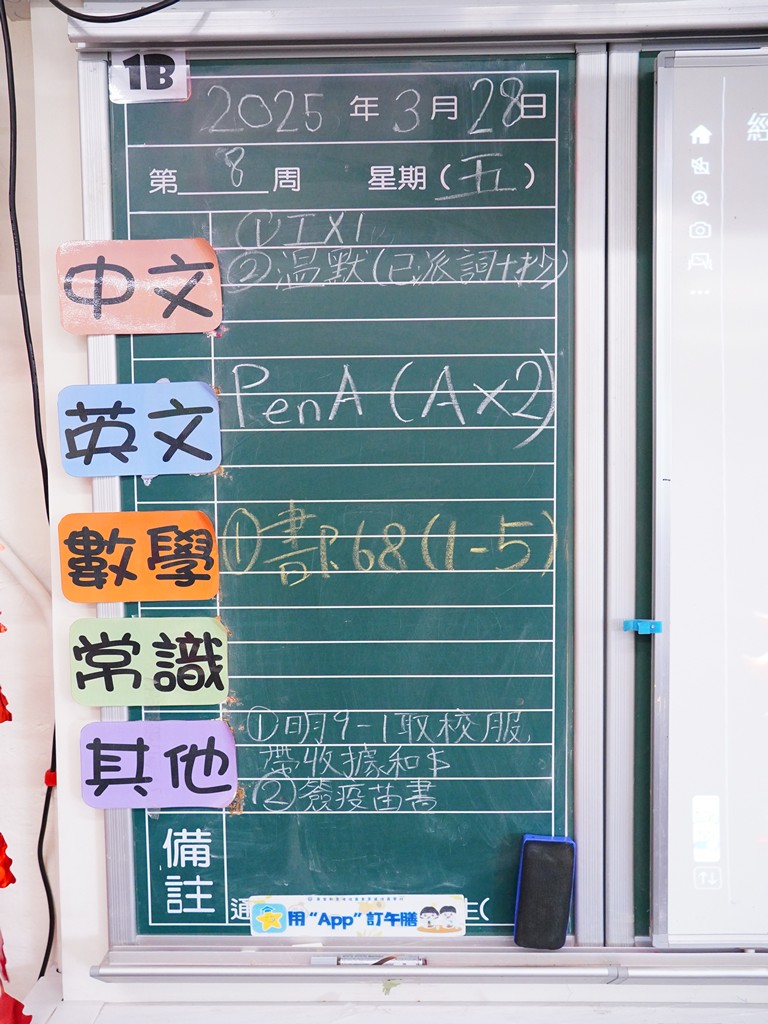 1B
2025 年 3 月 28 日
第 8 周 星期（五）
中文
① 工X1
② 溫默(已派詞+抄)
英文
PenA (A×2)
數學
① 書P.68(1-5)
常識
其他
① 明9-1取校服,
帶收據和$
② 簽疫苗書
備註
用“App”訂午膳